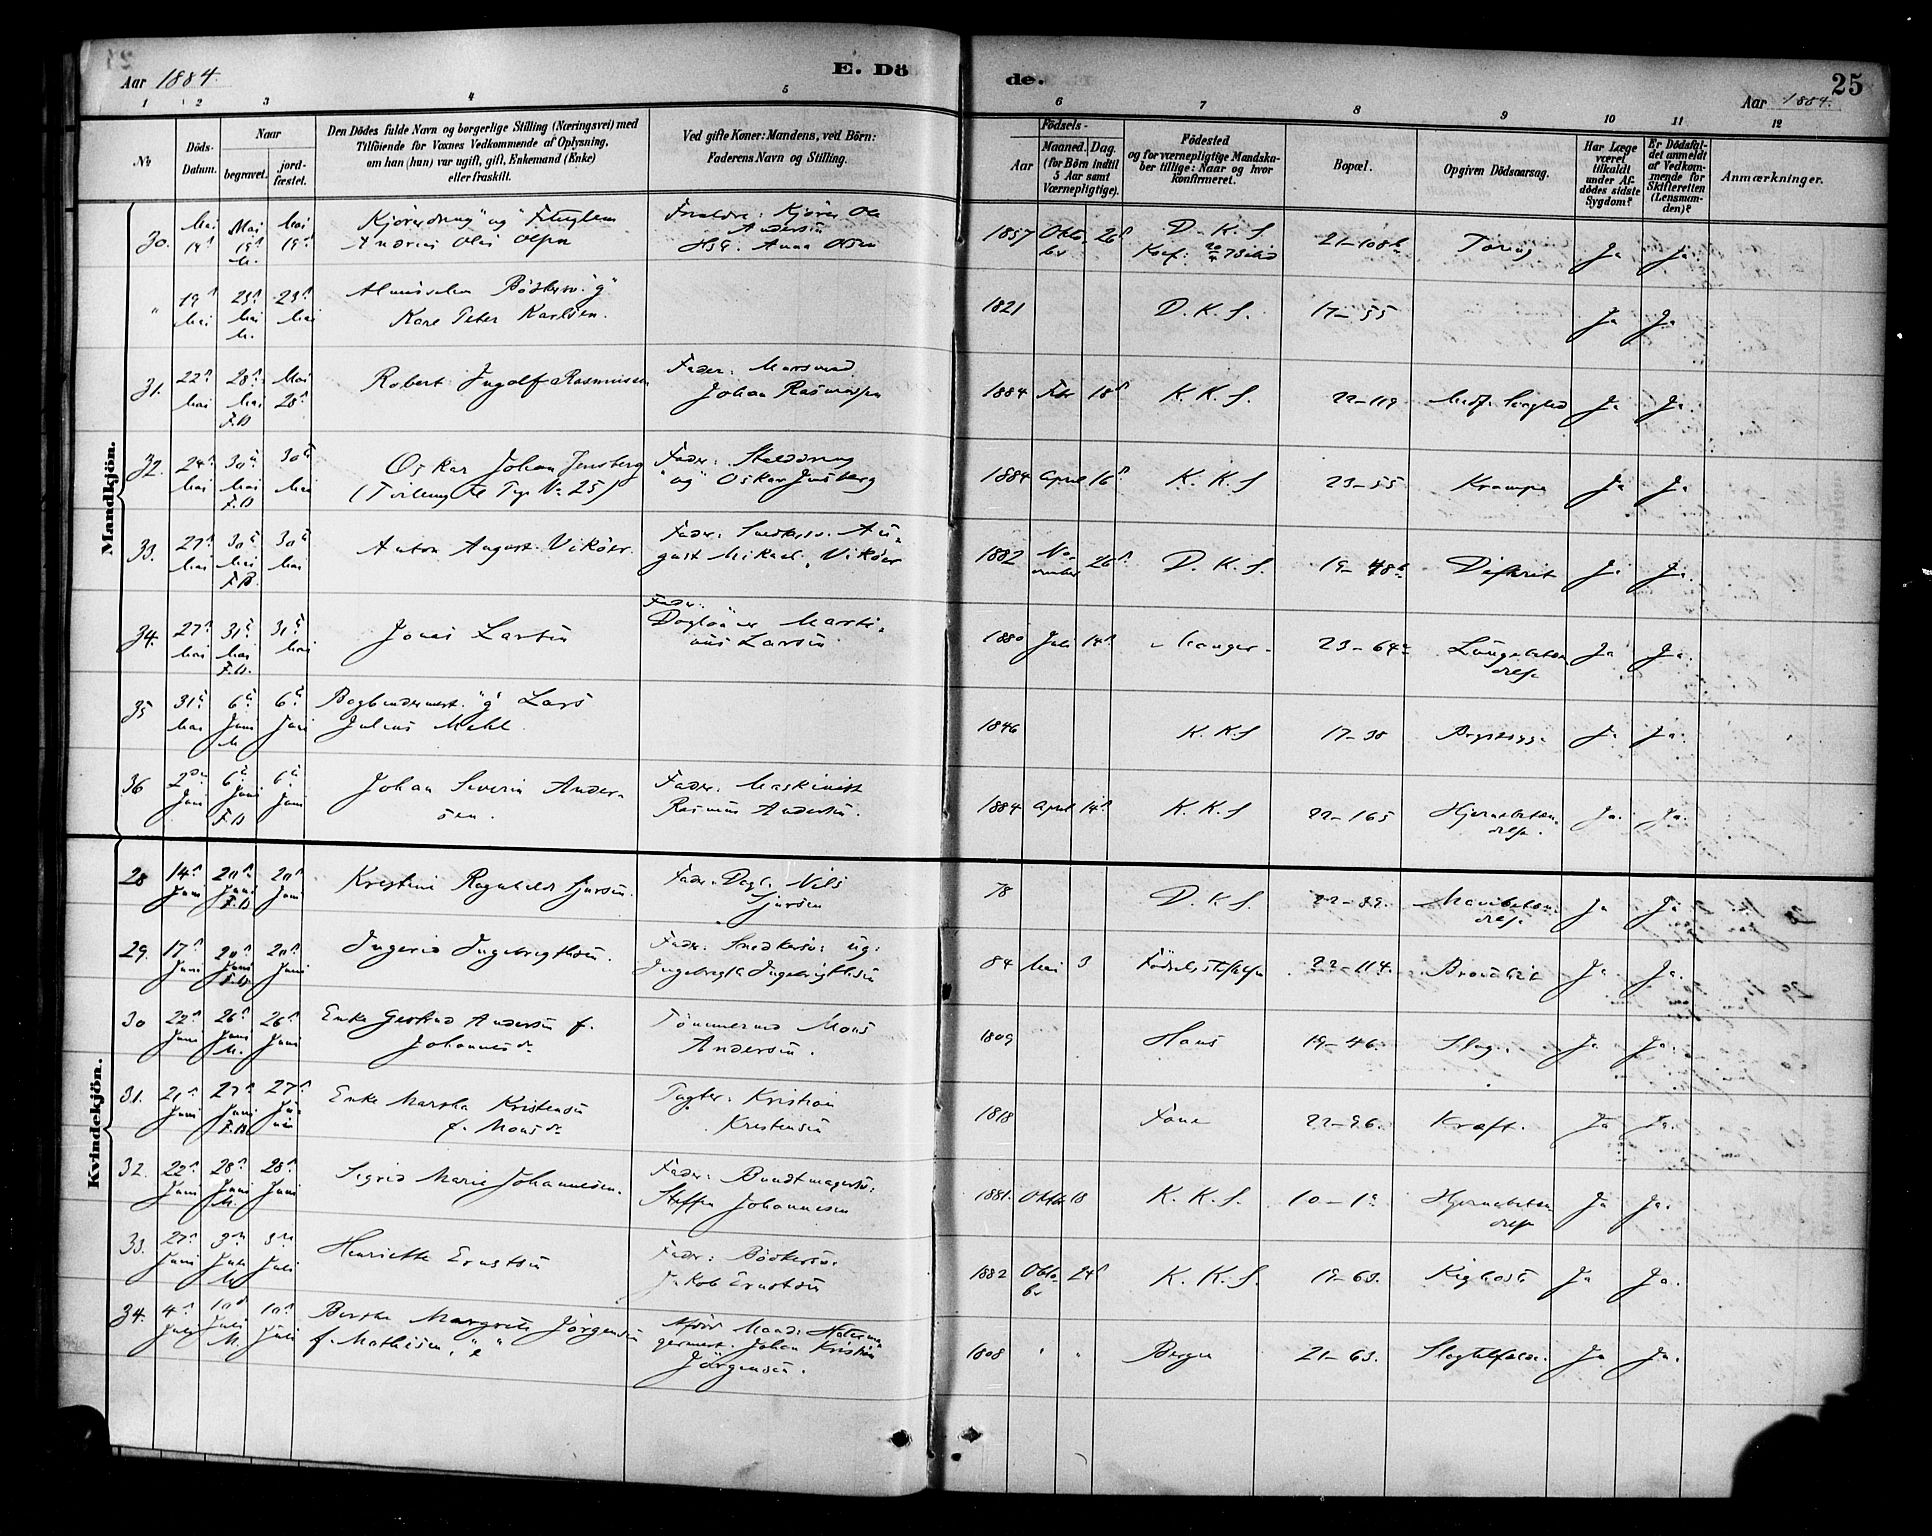 Aar 1884.
E. Dö de.
25
Aar 1884.
1 2 3 4 5 6 7 8 9 10 11 12
No
Döds-
Datum.
Naar
begravet.
jord-
fæstet.
Den Dödes fulde Navn og borgerlige Stilling (Næringsvei) med
Tilföiende for Voxnes Vedkommende af Oplysning,
om han (hun) var ugift, gift, Enkemand (Enke)
eller fraskilt.
Ved gifte Koner: Mandens, ved Börn:
Faderens Navn og Stilling.
Födsels-
Aar
Maaned. Dag.
(for Börn indtil
5 Aar samt
Værnepligtige).
Födested
og for værnepligtige Mandska-
ber tillige: Naar og hvor
konfirmeret.
Bopæl.
Opgiven Dödsaarsag.
Har Læge
været
tilkaldt
under Af-
dödes sidste
Sygdom?
Er Dödsfal-
det anmeldt
af Vedkom-
mende for
Skifteretten
(Lensman-
den)?
Anmærkninger.
Mandkjön.
30. Mai Mai Mai
Andreas Olai Olsen
Forældre: Kjörer Ole
Andersen
Anna Olsen
1857 Okto- 26 D. K. S. 21-108b Ja Ja.
ber
19 Mai 23 Mai 23 Mai
Kare Peter Karlsen.
1821 D. K. S. 17-55 Ja Ja
31. 22 Mai 28 Mai F.B Mai 28
Robert Ingolf Rasmussen
Fader: Matros
Johan Rasmussen
1884 Febr 18 K. K. S. 22-119 Ja Ja.
32. 24 Mai 30 Mai F.B 30 Mai
Oskar Johan Jensberg
(Tvilling Fe Top No 25)
Fader: Stalddreng
"ug" Oskar Jensberg
1884 April 16 K. K. S 23-55 Krampe Ja Ja
33. 27 Mai 30 Mai F.B. 30 Mai
Anton August Viköer.
Fader: Snedkersv. Au-
gust Mikael Viköer
1882 No- 26 D. K. S. 19-48b Difterit Ja Ja.
vember
34. 27 Mai 31 Mai F.B. 31 Mai
Jonas Larsen
Fader:
Daglönner Marti-
nus Larsen
1880 Juli 14 Manger. 23-64a Lungebetæn- Ja Ja.
delse
35 31 Mai 6 Juni M 6 Juni
Bogbindermest. "g" Lars
Julius Mehl.
1846 K. K. S 17-38 Brystsyge Ja Ja.
36 2den Juni 6 Juni F.B 6 Juni
Johan Severin Ander-
sen.
Fader: Maskinist
Rasmus Andersen.
1884 April 14 K. K. S 22-165 Hjernebetæn- Ja. Ja.
delse.
Kvindekjön.
28 14 Juni 20 Juni F.B 20 Juni
Kristine Ragnhilde Sjursen.
Fader: Dagl. Nils
Sjursen
78 D. K. S. 22-89. Mavebetæn- Ja Ja
delse
29. 17 Juni 20 Juni F.B 20 Juni
Ingerid Ingebrigtsen.
Fader: Snedkersv. ug.
Ingebrigt Ingebrigtsen
84 Mai 3 Födselsstiftelsen 22-114. Bronchit Ja Ja.
30 22 Juni 26 Juni M. 26 Juni
Enke Gertrud Andersen f.
Johannesdr.
Tömmermd Mons
Andersen.
1809 Haus 19-46. Slag. Ja Ja.
31. 21 Juni 27 Juni F.B 27 Juni
Enke Martha Kristensen
f. Monsdr.
Kristian
Kristensen
1818 Fane 22-96. Kræft. Ja Ja.
32. 22 Juni 28 Juni M. 28 Juni
Sigrid Marie Johannesen.
Fader: Bundtmagersv.
Steffen Johannesen
1881. Oktbr 18 K. K. S. 10-1a Hjernebetæn- Ja Ja.
delse
33. 27 Juni 3 Juli M 3 Juli
Henriette Ernstsen
Fader: Bödkersv.
Jakob Ernstsen
1882 Okto- 24 K. K. S. 19-63. Kighoste Ja Ja.
ber
34. 4 Juli 10 Juli M. 10 Juli
Berthe Margrete Jörgensen
f. Mathisen, "e"
Afdöd Mand: Hattema-
germest. Johan Kristian
Jörgensen.
1808 " " Bergen 21-63. Slagtilfælde. Ja Ja.